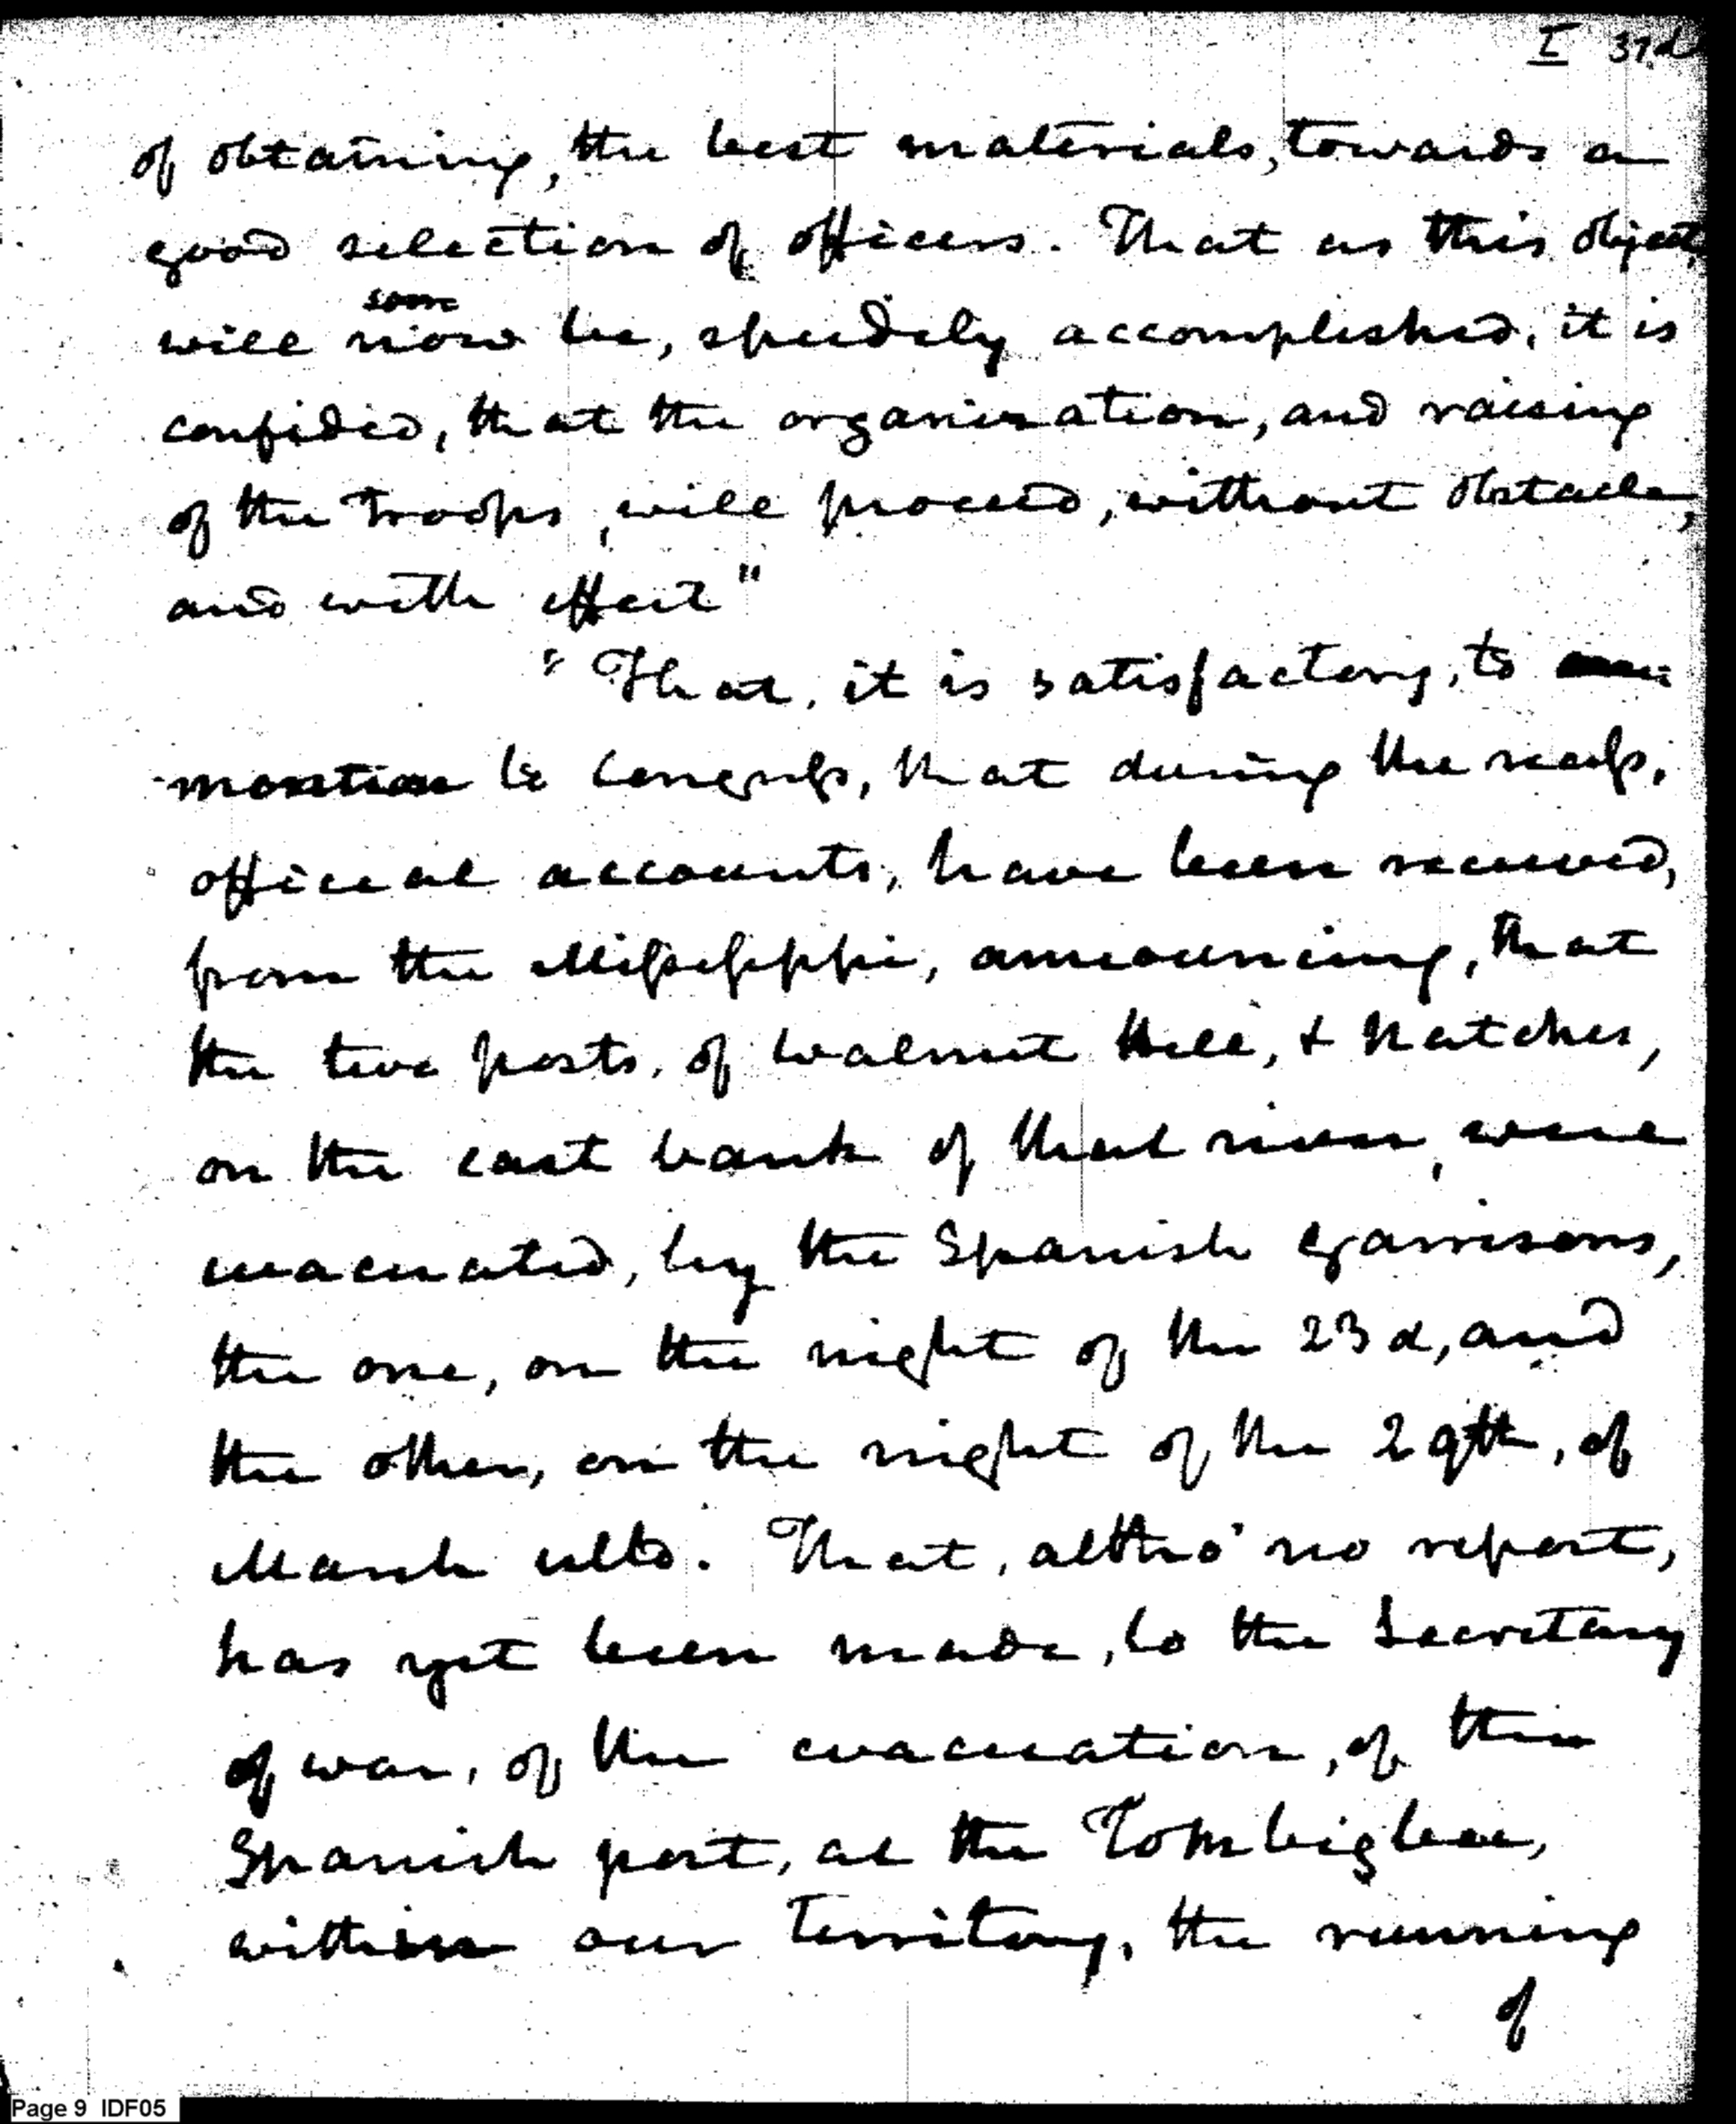 I 37.d
of obtaining, the best materials, towards a
good selection of officers. That as this object,
soon
will now be, speedely accomplished, it is
confided, that the organization, and raising
of the Troops, will proceed, without obstacle,
and with effect"
"That, it is satisfactory, to
mention to Congress, that during the recess,
official accounts, have been received,
from the Mississippi, announcing, that
the two posts, of Walnut Hill, & Natches,
on the east bank of that river, were
evacuated, by the Spanish garrisons,
the one, on the night of the 23d, and
the other, on the night of the 29th, of
March ulto. That, altho' no report,
has yet been made, to the Secretary
of war, of the evacuation, of the
Spanish port, at the Tombigbee,
within our Territory, the running
of
Page 9 IDF05